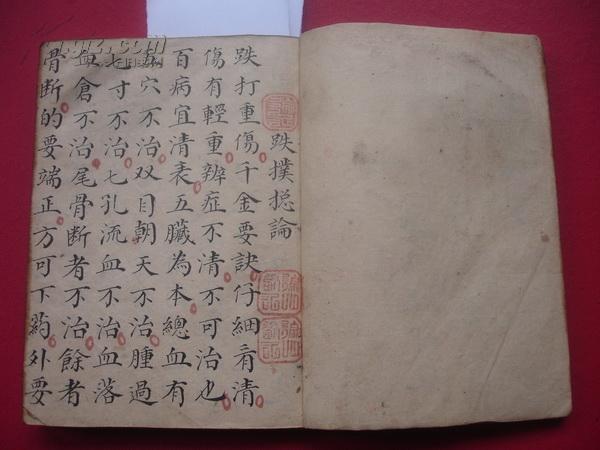 跌撲捴論
跌打重傷千金要訣仔細看清
傷有輕重辨症不清不可治也
百病宜清表五臟為本總血有
五穴不治双目朝天不治腫過
七寸不治七孔流血不治血落
血倉不治尾骨断者不治餘者
骨断的要端正方可下药外要